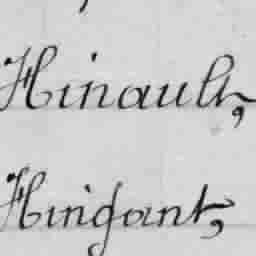 Hinault,
Hingant,